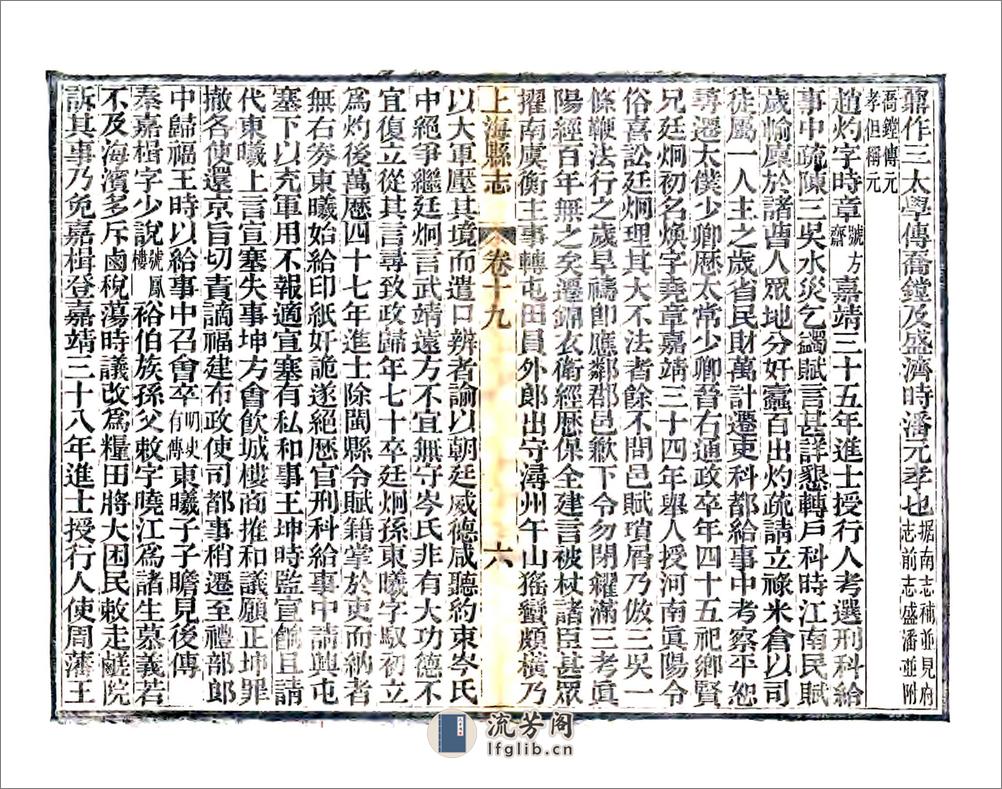 鼎作三太學傳喬鏜及盛濟時潘元孝也据南志補並見府志前志盛潘並附
喬鏜傳元孝但稱元
趙灼字時章號方齋嘉靖三十五年進士授行人考選刑科給
事中疏陳三吳水災乞蠲賦言甚詳懇轉戶科時江南民賦
歲輸廩於諸曹人眾地分奸蠹百出灼疏請立祿米倉以司
徒屬一人主之歲省民財萬計遷吏科都給事中考察平恕
尋遷太僕少卿歷太常少卿晉右通政卒年四十五祀鄉賢
兄廷炯初名煥字堯章嘉靖三十四年舉人授河南眞陽令
俗喜訟廷炯理其大不法者餘不問邑賦瑣屑乃倣三吳一
條鞭法行之歲旱禱卽應鄰郡邑歉下令勿閉糴滿三考眞
陽經百年無之矣遷錦衣衛經歷保全建言被杖諸臣甚眾
擢南虞衡主事轉屯田員外郎出守潯州午山猺蠻頗橫乃
上海縣志 卷十九 六
以大軍壓其境而遣口辨者諭以朝廷威德咸聽約束岑氏
中絕爭繼廷炯言武靖遠方不宜無守岑氏非有大功德不
宜復立從其言尋致政歸年七十卒廷炯孫東曦字馭初立
爲灼後萬歷四十七年進士除閩縣令賦籍掌於吏而納者
無右券東曦始給印紙奸詭遂絕歷官刑科給事中請興屯
塞下以充軍用不報適宣塞有私和事王坤時監宣餉且請
代東曦上言宣塞失事坤方會飲城樓商推和議願正坤罪
撤各使還京旨切責謫福建布政使司都事稍遷至禮部郎
中歸福王時以給事中召會卒明史有傳東曦子子瞻見後傳
秦嘉楫字少說號鳳樓裕伯族孫父敕字曉江爲諸生慕義若
不及海濱多斥鹵稅蕩時議改爲糧田將大困民敕走鹺院
訴其事乃免嘉楫登嘉靖三十八年進士授行人使周藩王
流芳阁
lfglib.cn